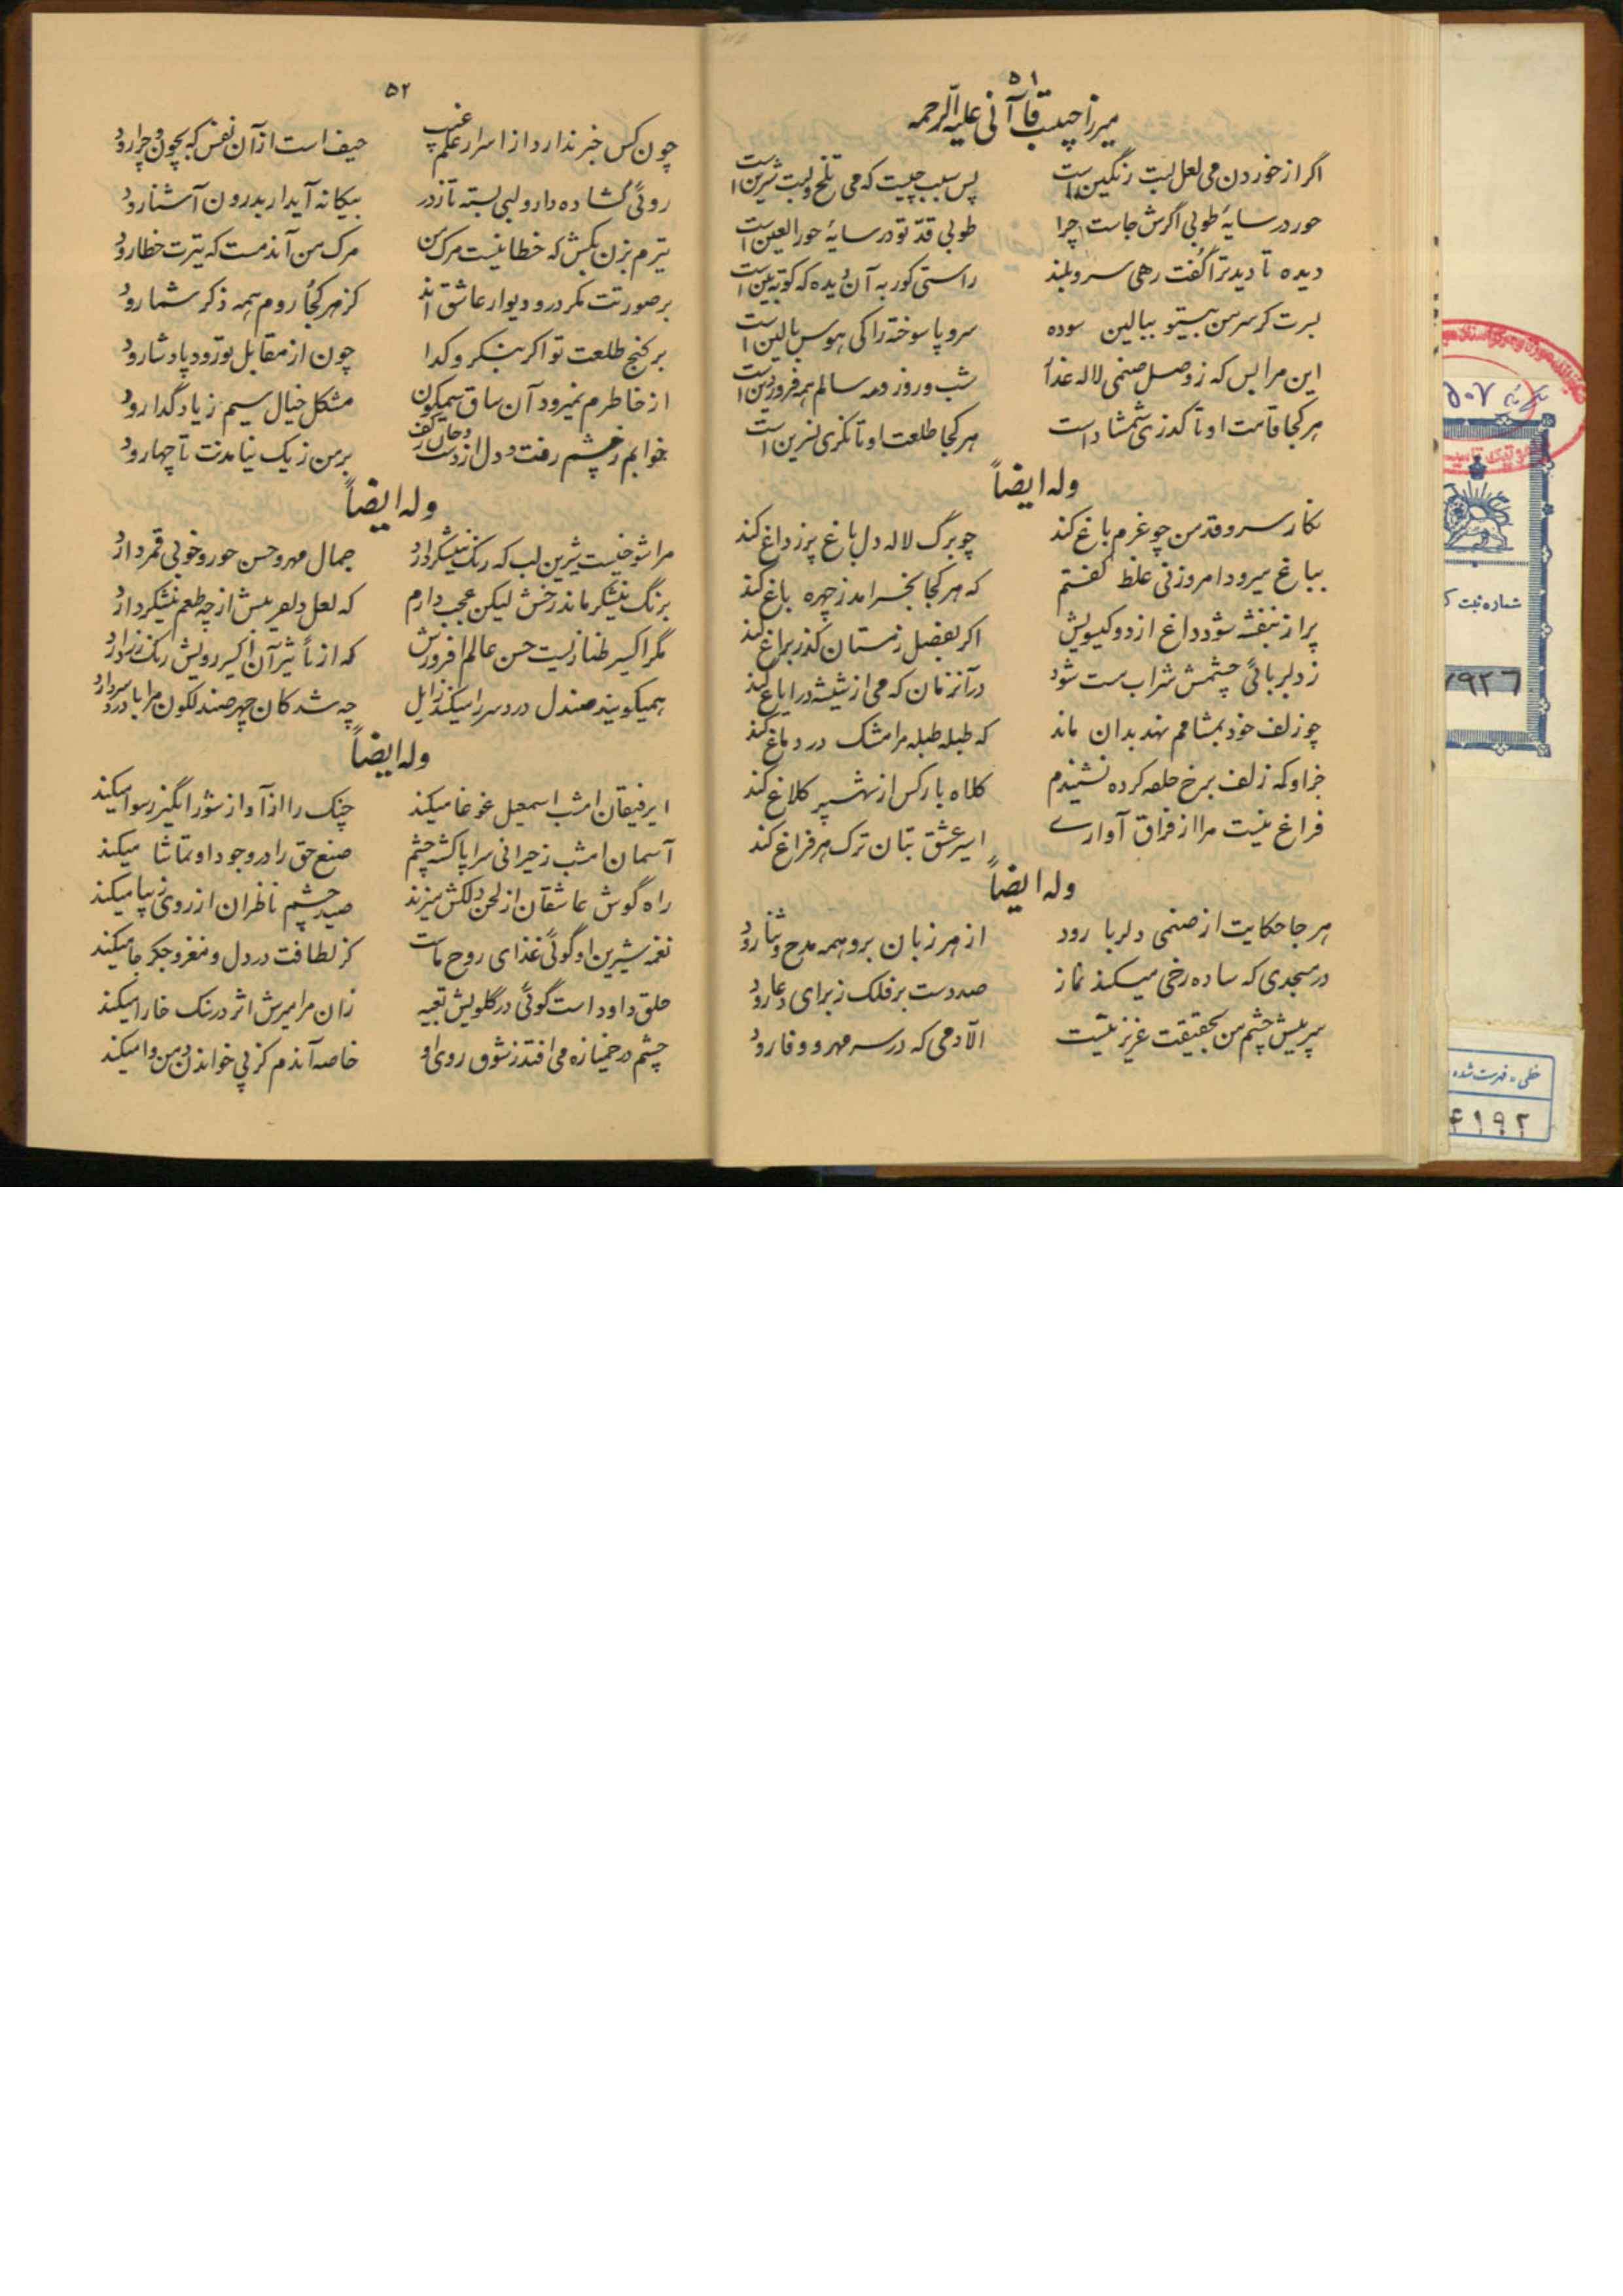 ۵۱
میرزا حبیب قاآنی علیه الرحمه
اگر از خوردن می لعل لبت رنگین است پس سبب چیست که می تلخ و لبت شیرین است
حور در سایهٔ طوبی اگرش جاست چرا طوبی قد تو در سایهٔ حور العین است
دیده تا دید ترا گفت رهی سرو بلند راستی کور به آن دیده که کوته بین است
بسرت کر سر من بیتو ببالین سوده سر و پا سوخته را کی هوس بالین است
این مرا بس که ز وصل صنمی لاله عذار شب و روز و مه سالم همه فروردین است
هر کجا قامت او تا کذری شمشاد است هر کجا طلعت او تا نکری نسرین است
وله ایضاً
نکار سرو قد من چو عزم باغ کند چو برگ لاله دل باغ پر ز داغ کند
بباغ میرود امروز نی غلط کفتم که هر کجا بخرامد ز چهره باغ کند
پر از بنفشه شود داغ از دو کیسویش اکر بفصل زمستان کذر براغ کند
ز دلربائی چشمش شراب مست شود در آنزمان که می از شیشه در ایاغ کند
چو زلف خود بمشامم نهد بدان ماند که طبله طبله مرا مشک در دماغ کند
جز او که زلف برخ حلقه کرده نشنیدم کلاه بارکس از شهپر کلاغ کند
فراغ نیست مرا از فراق آوارے اسیر عشق بتان ترک هر فراغ کند
وله ایضاً
هر جا حکایت از صنمی دلربا رود از هر زبان برو همه مدح و ثنا رود
در مسجدی که ساده رخی میکند نماز صد دست بر فلک ز برای دعا رود
پر پیش چشم من بحقیقت عزیز نیست الا دمی که در سر مهر و وفا رود
۵۲
چون کس خبر ندارد از اسرار علم غیب حیف است از آن نفس که بچون و چرا رود
روئی گشاده دارد و لبی بسته تا ز در بیکانه آید ار بدرون آشنا رود
تیرم بزن بکش که خطا نیست مرک من مرک من آندمست که تیرت خطا رود
بر صورتت مکر در و دیوار عاشق اند کز هر کجا روم همه ذکر شما رود
بر کنج طلعت تو اکر بنکرد کدا چون از مقابل تو رود پادشا رود
از خاطرم نمیرود آن ساق سیمکون مشکل خیال سیم ز یاد گدا رود
خوابم ز چشم رفت و دل از دست و جان ز کف بر من ز یک نیامدنت تا چها رود
وله ایضاً
مرا شوخیست شیرین لب که رنک نیشکر دارد جمال مهر و حسن حور و خوبی قمر دارد
برنگ نیشکر ماند رخش لیکن عجب دارم که لعل دلفریبش از چه طعم نیشکر دارد
مگر اکسیر طنازیست حسن عالم افروزش که از تأثیر آن اکسیر رویش رنک زر دارد
همیکویند صندل درد سر را میکند زایل چه شد کان چهر صندلکون مرا با درد سر دارد
وله ایضاً
ایرفیقان امشب اسمعیل غوغا میکند چنک را از آواز شور انگیز رسوا میکند
آسمان امشب ز حیرانی سراپا کشته چشم صنع حق را در وجود او تماشا میکند
راه گوش عاشقان از لحن دلکش میزند صید چشم ناظران از روی زیبا میکند
نغمه شیرین او گوئی غذای روح ماست کز لطافت در دل و مغز و جکر جا میکند
حلق داود است گوئی در گلویش تعبیه زان مزامیرش اثر در سنک خارا میکند
چشم در خمیازه می افتد ز شوق روی او خاصه آندم کز پی خواندن دهن وا میکند
شماره ثبت ک
۷۹۲۶
خطی - فهرست شده
۴۱۹۲